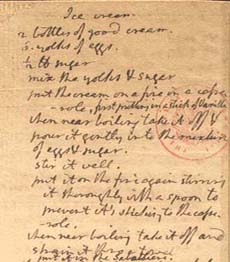 Ice cream.
2. bottles of good cream.
6. yolks of eggs.
1/2 lb sugar
mix the yolks & sugar
put the cream on a fire in a casse-
-role, first putting in a stick of Vanilla.
when near boiling take it off &
pour it gently into the mixture
of eggs & sugar.
stir it well.
put it on the fire again stirring
it thoroughly with a spoon to
prevent it's sticking to the casse-
-role.
when near boiling take it off and
strain it thro' a towel.
put it in the Sabottiere